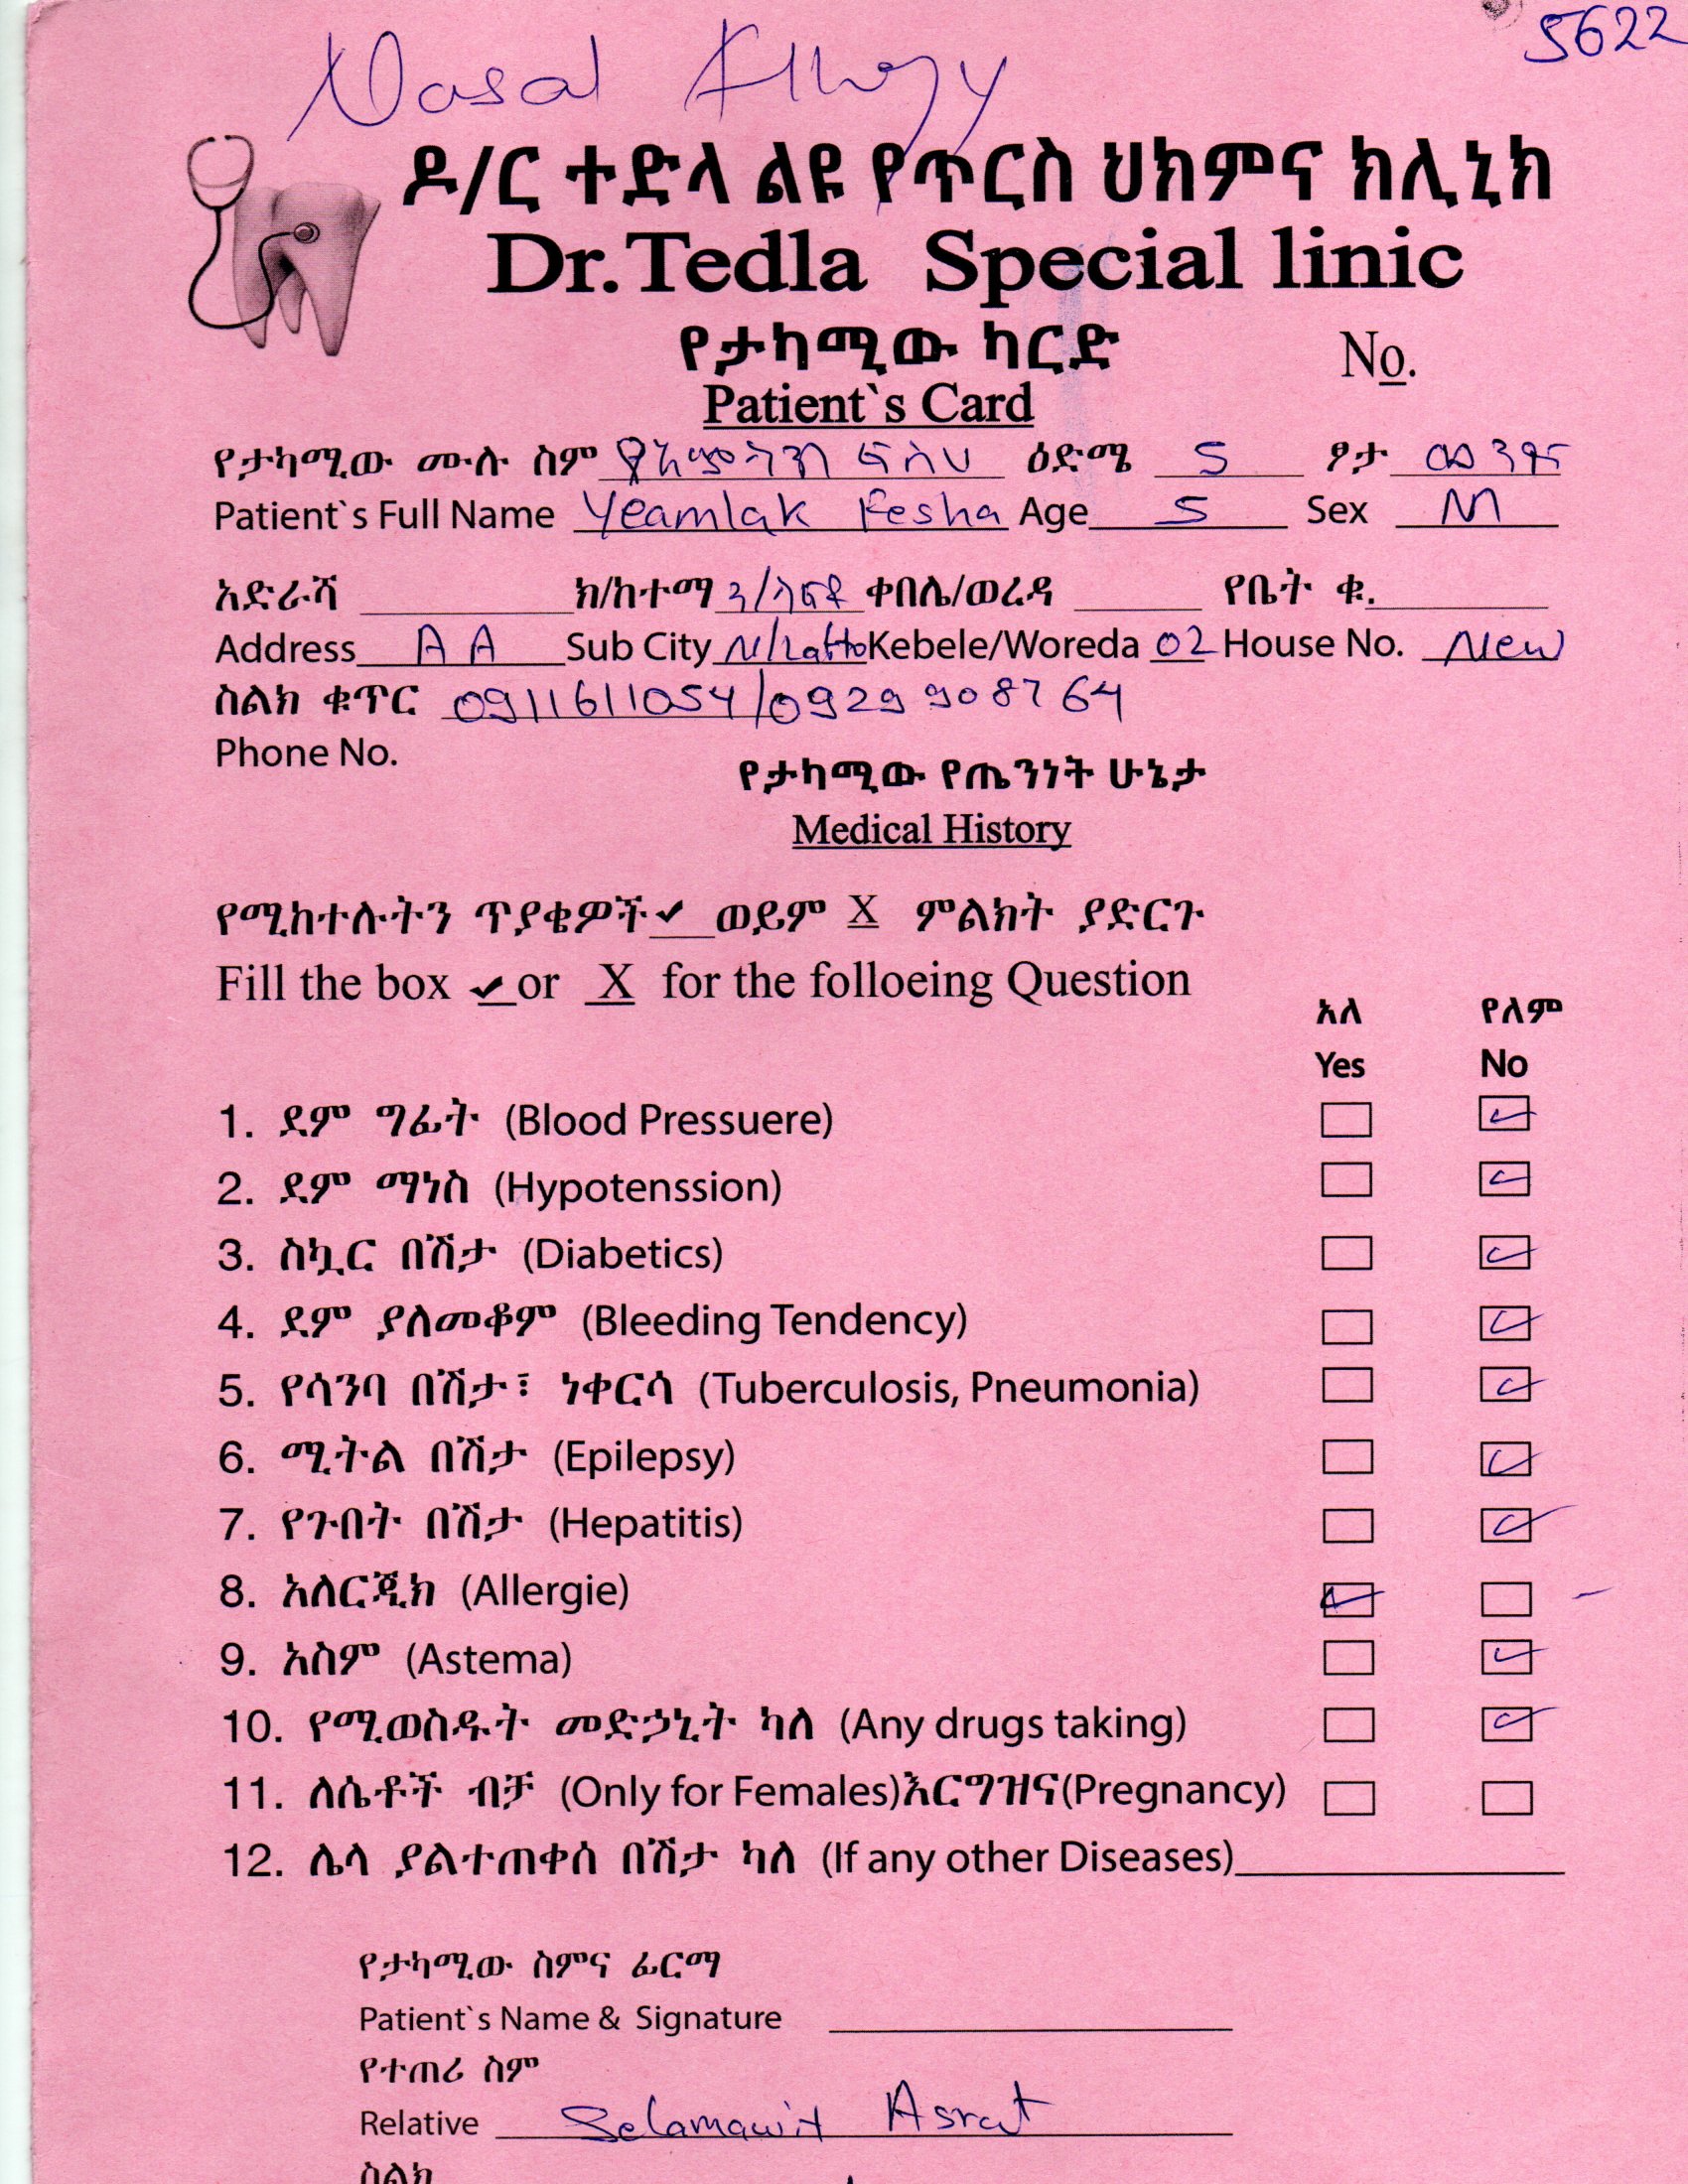 5622
Nasal Allergy
ዶ/ር ተድላ ልዩ የጥርስ ህክምና ክሊኒክ
Dr.Tedla Special linic
የታካሚው ካርድ
No.
Patient`s Card
የታካሚው ሙሉ ስም የአምላክ ፍስሀ ዕድሜ 5 ፆታ ወንድ
Patient`s Full Name Yeamlak Fesha Age 5 Sex M
አድራሻ ክ/ከተማ ን/ላፍቶ ቀበሌ/ወረዳ የቤት ቁ.
Address A A Sub City N/Lafto Kebele/Woreda 02 House No. New
ስልክ ቁጥር 0911611054/0929908764
Phone No.
የታካሚው የጤንነት ሁኔታ
Medical History
የሚከተሉትን ጥያቄዎች ✔ ወይም X ምልክት ያድርጉ
Fill the box ✔ or X for the folloeing Question
አለ የለም
Yes No
1. ደም ግፊት (Blood Pressuere)
2. ደም ማነስ (Hypotenssion)
3. ስኳር በሽታ (Diabetics)
4. ደም ያለመቆም (Bleeding Tendency)
5. የሳንባ በሽታ፣ ነቀርሳ (Tuberculosis, Pneumonia)
6. ሚትል በሽታ (Epilepsy)
7. የጉበት በሽታ (Hepatitis)
8. አለርጂክ (Allergie)
9. አስም (Astema)
10. የሚወስዱት መድኃኒት ካለ (Any drugs taking)
11. ለሴቶች ብቻ (Only for Females)እርግዝና(Pregnancy)
12. ሌላ ያልተጠቀሰ በሽታ ካለ (If any other Diseases)
የታካሚው ስምና ፊርማ
Patient`s Name & Signature
የተጠሪ ስም
Relative Selamawit Asrat
ስልክ